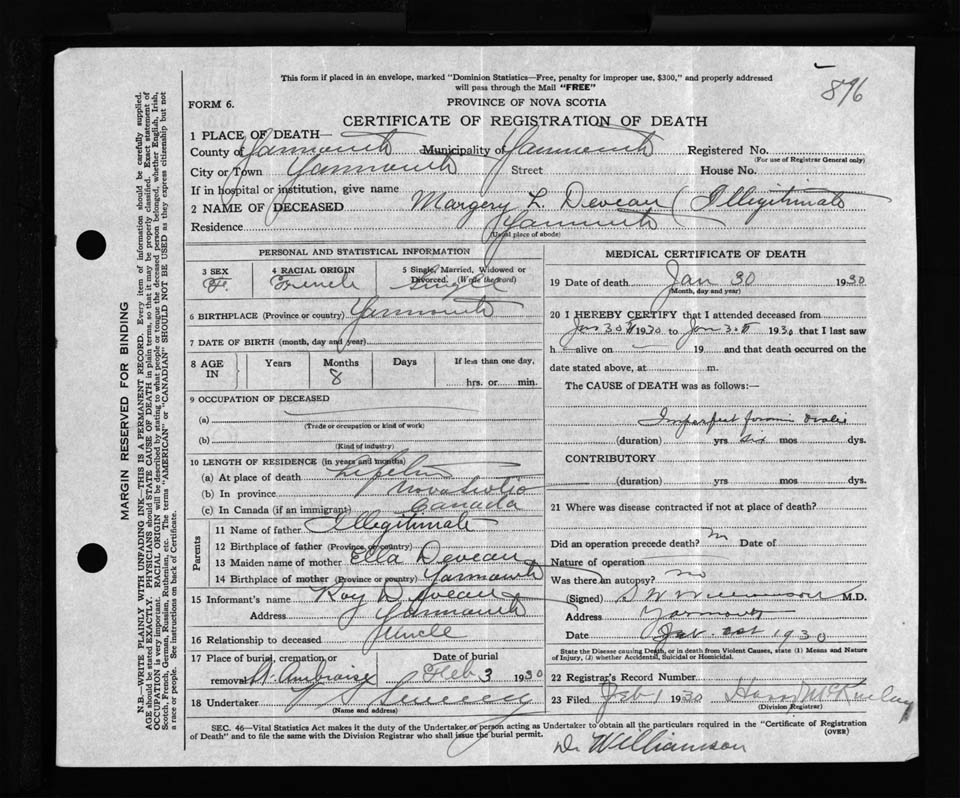 896
This form if placed in an envelope, marked "Dominion Statistics—Free, penalty for improper use, $300," and properly addressed
will pass through the Mail "FREE"
FORM 6.
PROVINCE OF NOVA SCOTIA
CERTIFICATE OF REGISTRATION OF DEATH
MARGIN RESERVED FOR BINDING
N.B.—WRITE PLAINLY WITH UNFADING INK—THIS IS A PERMANENT RECORD. Every item of information should be carefully supplied.
AGE should be stated EXACTLY. PHYSICIANS should STATE CAUSE OF DEATH in plain terms, so that it may be properly classified. Exact statement of
OCCUPATION is very important. RACIAL ORIGIN will be described by stating to what people or tongue the deceased person belonged, whether English, Irish,
Scotch, French, German, Russian, Ruthenian, etc. The terms "AMERICAN" or "CANADIAN" SHOULD NOT BE USED as they express citizenship but not
a race or people. See instructions on back of Certificate.
1 PLACE OF DEATH—
County of Yarmouth Municipality of Yarmouth Registered No.
(For use of Registrar General only)
City or Town Yarmouth Street House No.
If in hospital or institution, give name
2 NAME OF DECEASED Margery L. Deveau (Illegitimate
Residence Yarmouth
(Usual place of abode)
PERSONAL AND STATISTICAL INFORMATION
3 SEX F. 4 RACIAL ORIGIN French 5 Single, Married, Widowed or Divorced. (Write the word) Single
6 BIRTHPLACE (Province or country) Yarmouth
7 DATE OF BIRTH (month, day and year)
8 AGE IN Years Months 8 Days If less than one day, hrs. or min.
9 OCCUPATION OF DECEASED
(a)
(Trade or occupation or kind of work)
(b)
(Kind of industry)
10 LENGTH OF RESIDENCE (in years and months)
(a) At place of death Lifetime
(b) In province Nova Scotia
(c) In Canada (if an immigrant) Canada
Parents
11 Name of father Illegitimate
12 Birthplace of father (Province or country)
13 Maiden name of mother Ella Deveau
14 Birthplace of mother (Province or country) Yarmouth
15 Informant's name Roy D Deveau
Address Yarmouth
16 Relationship to deceased Uncle
17 Place of burial, cremation or removal St. Ambroise Date of burial Feb 3 1930
18 Undertaker Sweeney
(Name and address)
MEDICAL CERTIFICATE OF DEATH
19 Date of death Jan 30 1930
(Month, day and year)
20 I HEREBY CERTIFY that I attended deceased from
Jan 30th 1930 to Jan 30th 1930 that I last saw
h alive on — 19 and that death occurred on the
date stated above, at m.
The CAUSE of DEATH was as follows:—
Imperfect foramen ovale
(duration) yrs six mos dys.
CONTRIBUTORY
(duration) yrs mos dys.
21 Where was disease contracted if not at place of death?
Did an operation precede death? Date of
Nature of operation
Was there an autopsy? no
(Signed) S W Williamson M.D.
Address Yarmouth
Date Feb. 1st 1930
State the Disease causing Death, or in death from Violent Causes, state (1) Means and Nature
of Injury, (2) whether Accidental, Suicidal or Homicidal.
22 Registrar's Record Number
23 Filed Feb 1 1930
(Division Registrar)
SEC. 46—Vital Statistics Act makes it the duty of the Undertaker or person acting as Undertaker to obtain all the particulars required in the "Certificate of Registration
of Death" and to file the same with the Division Registrar who shall issue the burial permit.
(OVER)
Dr Williamson